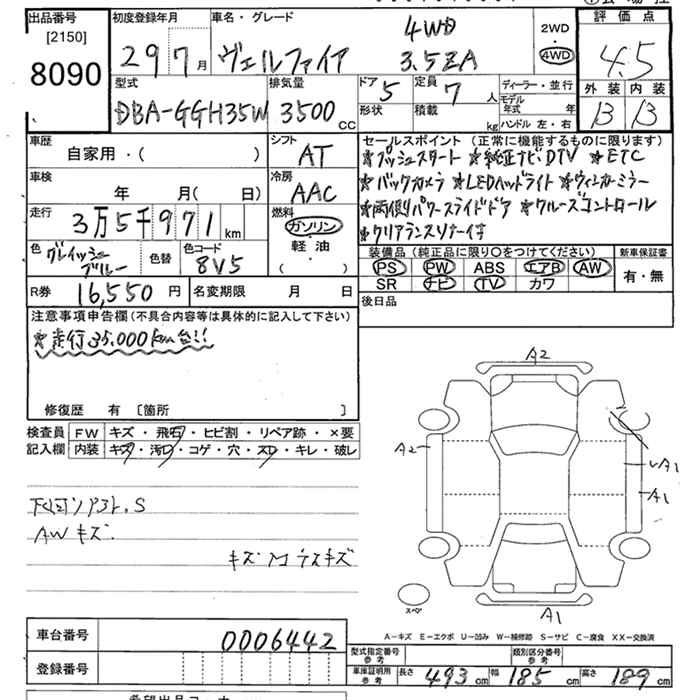 出品番号 初度登録年月 車名・グレード 4WD 2WD 評価点
[2150] 29 7月 ヴェルファイア 3.5ZA 4WD 4.5
8090
型式 排気量 ドア 定員 ディーラー・並行 外装 内装
DBA-GGH35W 3500cc 5 7人 モデル年式 年 B B
形状 積載 kg ハンドル 左・右
車歴 シフト セールスポイント(正常に機能するものに限ります)
自家用・( ) AT ★プッシュスタート ★純正ナビ・DTV ★ETC
車検 冷房 ★バックカメラ ★LEDヘッドライト ★ウィンカーミラー
年 月(日) AAC ★両側パワースライドドア ★クルーズコントロール
走行 燃料 ★クリアランスソナー付
3万5千971km ガソリン
色 色替 色コード 軽・油 装備品(純正品に限り〇をつけてください) 新車保証書
グレイッシュブルー 8V5 ( ) PS PW ABS エアB AW 有・無
R券 16,550円 名変期限 月 日 SR ナビ TV カワ
後日品
注意事項申告欄(不具合内容等は具体的に記入して下さい)
★走行35.000km台!!
修復歴 有 〔箇所 〕
検査員 FW キズ・飛石・ヒビ割・リペア跡・×要
記入欄 内装 キズ・汚レ・コゲ・穴・スレ・キレ・破レ
S
AWキズ
キズ
A2
A2
A1
A1
スペア
A1
A-キズ E-エクボ U-凹み W-補修跡 S-サビ C-腐食 XX-交換済
車台番号 0006442
型式指定番号参考 類別区分番号参考
登録番号
車庫証明用参考 長さ 493cm 幅 185cm 高さ 189cm